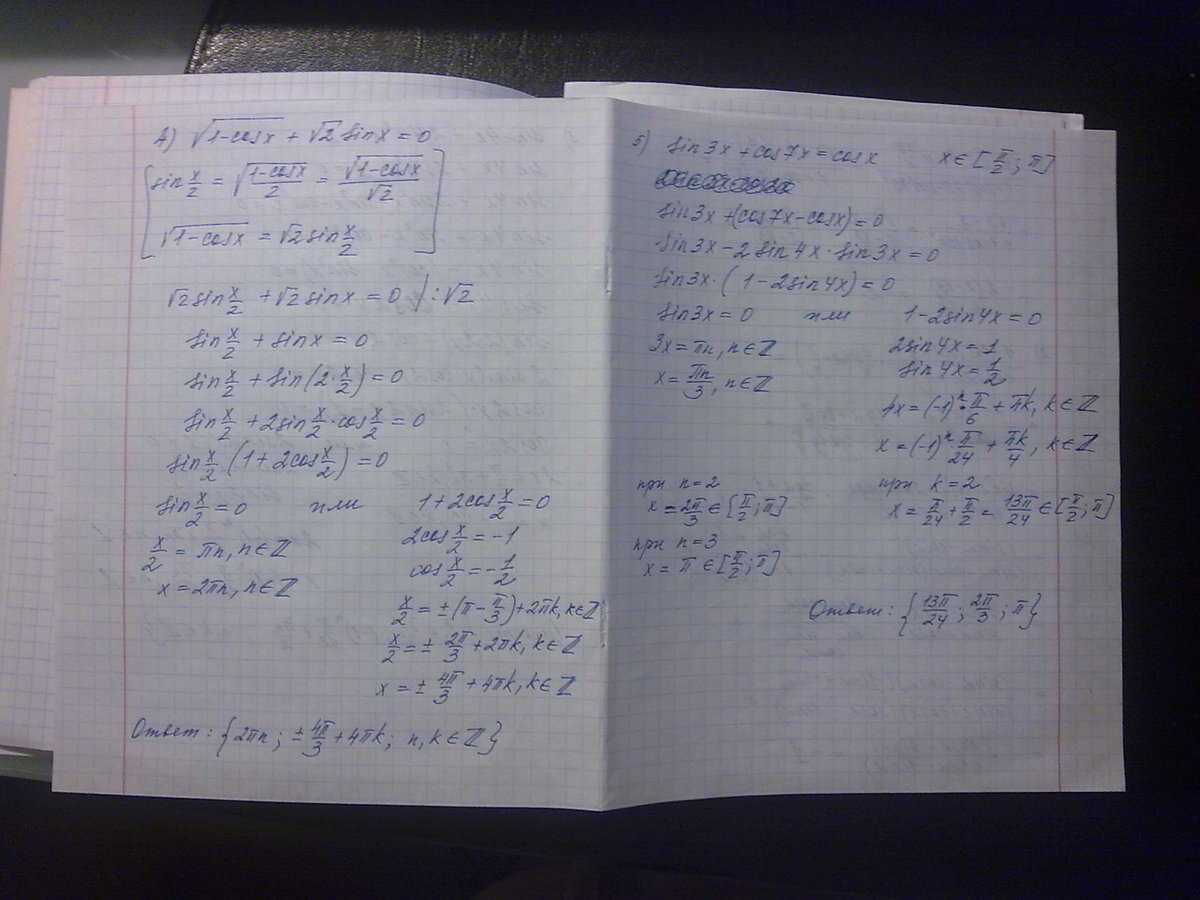 4) √1-cosx + √2 sinx = 0
[sin x/2 = √(1-cosx)/2 = √1-cosx/√2
√1-cosx = √2 sin x/2]
√2 sin x/2 + √2 sinx = 0 /:√2
sin x/2 + sinx = 0
sin x/2 + sin(2·x/2) = 0
sin x/2 + 2sin x/2·cos x/2 = 0
sin x/2 (1+2cos x/2) = 0
sin x/2 = 0 или 1+2cos x/2 = 0
x/2 = πn, n∈ℤ 2cos x/2 = -1
x = 2πn, n∈ℤ cos x/2 = -1/2
x/2 = ±(π-π/3)+2πk, k∈ℤ
x/2 = ± 2π/3 + 2πk, k∈ℤ
x = ± 4π/3 + 4πk, k∈ℤ
Ответ: {2πn; ± 4π/3 + 4πk; n, k∈ℤ}
5) sin3x + cos7x = cosx x∈[π/2; π]
sin3x + (cos7x-cosx) = 0
sin3x - 2 sin4x · sin3x = 0
sin3x · (1-2sin4x) = 0
sin3x = 0 или 1-2sin4x = 0
3x = πn, n∈ℤ 2sin4x = 1
x = πn/3, n∈ℤ sin4x = 1/2
4x = (-1)ⁿ·π/6 + πk, k∈ℤ
x = (-1)ⁿ·π/24 + πk/4, k∈ℤ
при n=2 при k=2
x = 2π/3 ∈ [π/2; π] x = π/24 + π/2 = 13π/24 ∈ [π/2; π]
при n=3
x = π ∈ [π/2; π]
Ответ: {13π/24; 2π/3; π}